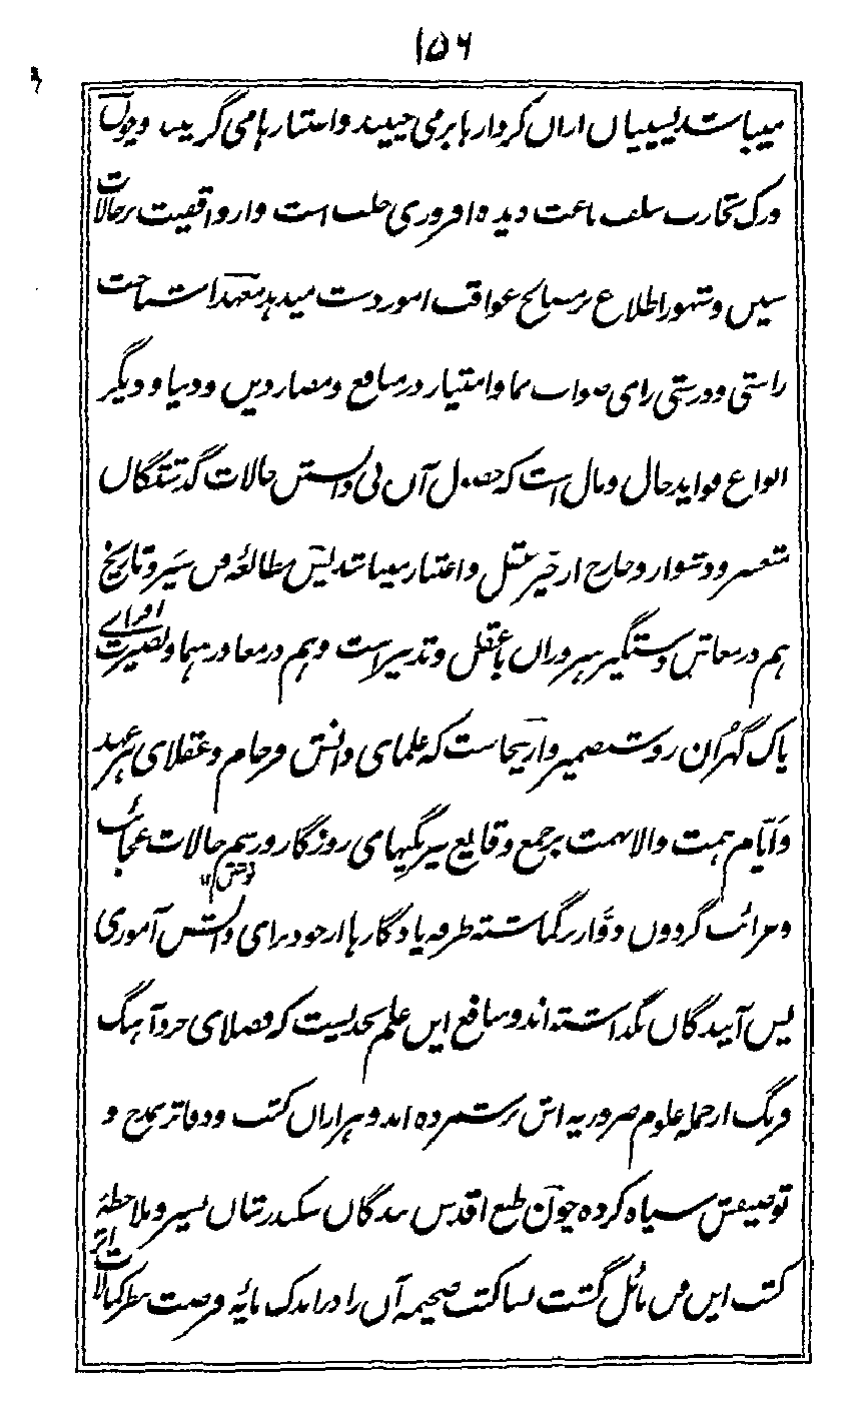 ۱۵۶
میباشد پسینیان ازان کردارها بر می چینند و اعتبارها می گزینند و چون
درک تجارب سلف باعث دیده افروزی خلف است و از واقفیت بر حالات
سنین و شهور اطلاع بر مصالح عواقب امور دست میدهد معهذا شناخت
راستی و درستی رای صواب نما و امتیاز در منافع و مضار دین و دنیا و دیگر
انواع فواید حال و مال است که حصول آن بی دانستن حالات گذشتگان
متعسر و دشوار و خارج از حیز عقل و اعتبار میباشد پس مطالعهٔ فن سیر و تاریخ
هم در معاش دستگیر هنروران با عقل و تدبیر است و هم در معاد رهنما و بصیرت افزای
پاک گهران روشن ضمیر و ازینجاست که علمای دانش فرجام و عقلای هر عهد
و ایام همت والا نهمت بر جمع وقایع نیرنگیهای روزگار و رسم حالات عجائب
و غرائب گردون دوّار بر گماشته طرفه یادگارها از خود برای دانش آموزی
پس آیندگان گذاشته اند و منافع این علم بحدیست که فضلای خرد آهنگ
فرنگ از جمله علوم ضروریه اش بر شمرده اند و هزاران کتب و دفاتر بمدح و
توصیفش سیاه کرده چون طبع اقدس بندگان سکندر شان بسیر و ملاحظهٔ
کتب این فن مائل گشت بسا کتب ضخیمه آن را در اندک مایهٔ فرصت بنظر کمالات اثر